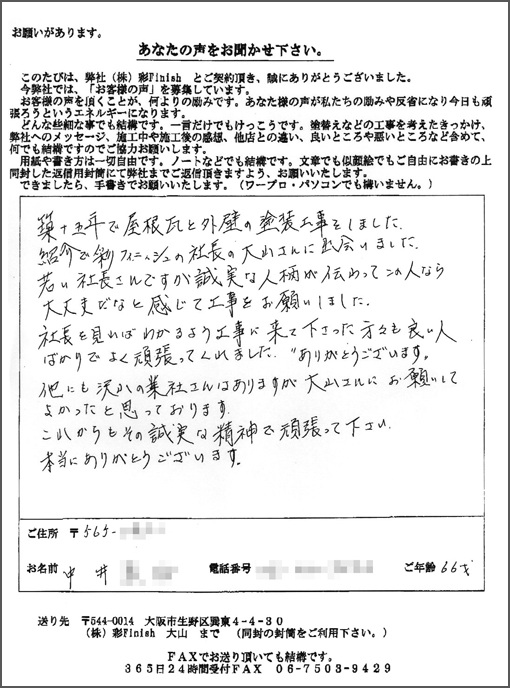 お願いがあります。
あなたの声をお聞かせ下さい。
このたびは、弊社（株）彩Finish とご契約頂き、誠にありがとうございました。
今弊社では、「お客様の声」を募集しています。
お客様の声を頂くことが、何よりの励みです。あなた様の声が私たちの励みや反省になり今日も頑
張ろうというエネルギーになります。
どんな些細な事でも結構です。一言だけでもけっこうです。塗替えなどの工事を考えたきっかけ、
弊社へのメッセージ、施工中や施工後の感想、他店との違い、良いところや悪いところなど含めて、
何でも結構ですのでご協力お願いします。
用紙や書き方は一切自由です。ノートなどでも結構です。文章でも似顔絵でもご自由にお書きの上
同封した返信用封筒にて弊社までご返信頂きますよう、お願いいたします。
できましたら、手書きでお願いいたします。（ワープロ・パソコンでも構いません。）
築十五年で屋根瓦と外壁の塗装工事をしました。
紹介で彩フィニッシュの社長の大山さんに出会いました。
若い社長さんですが誠実な人柄が伝わってこの人なら
大丈夫だなと感じて工事をお願いしました。
社長を見ればわかるよう工事に来て下さった方々も良い人
ばかりでよく頑張ってくれました。"ありがとうございます。
他にも沢かの業社さんはありますが大山さんにお願いして
よかったと思っております。
これからもその誠実な精神で頑張って下さい。
本当にありがとうございます。
ご住所 〒565-
お名前 中井 電話番号 ご年齢 66才
送り先 〒544-0014 大阪市生野区巽東4-4-30
（株）彩Finish 大山 まで （同封の封筒をご利用下さい。）
FAXでお送り頂いても結構です。
365日24時間受付FAX 06-7503-9429